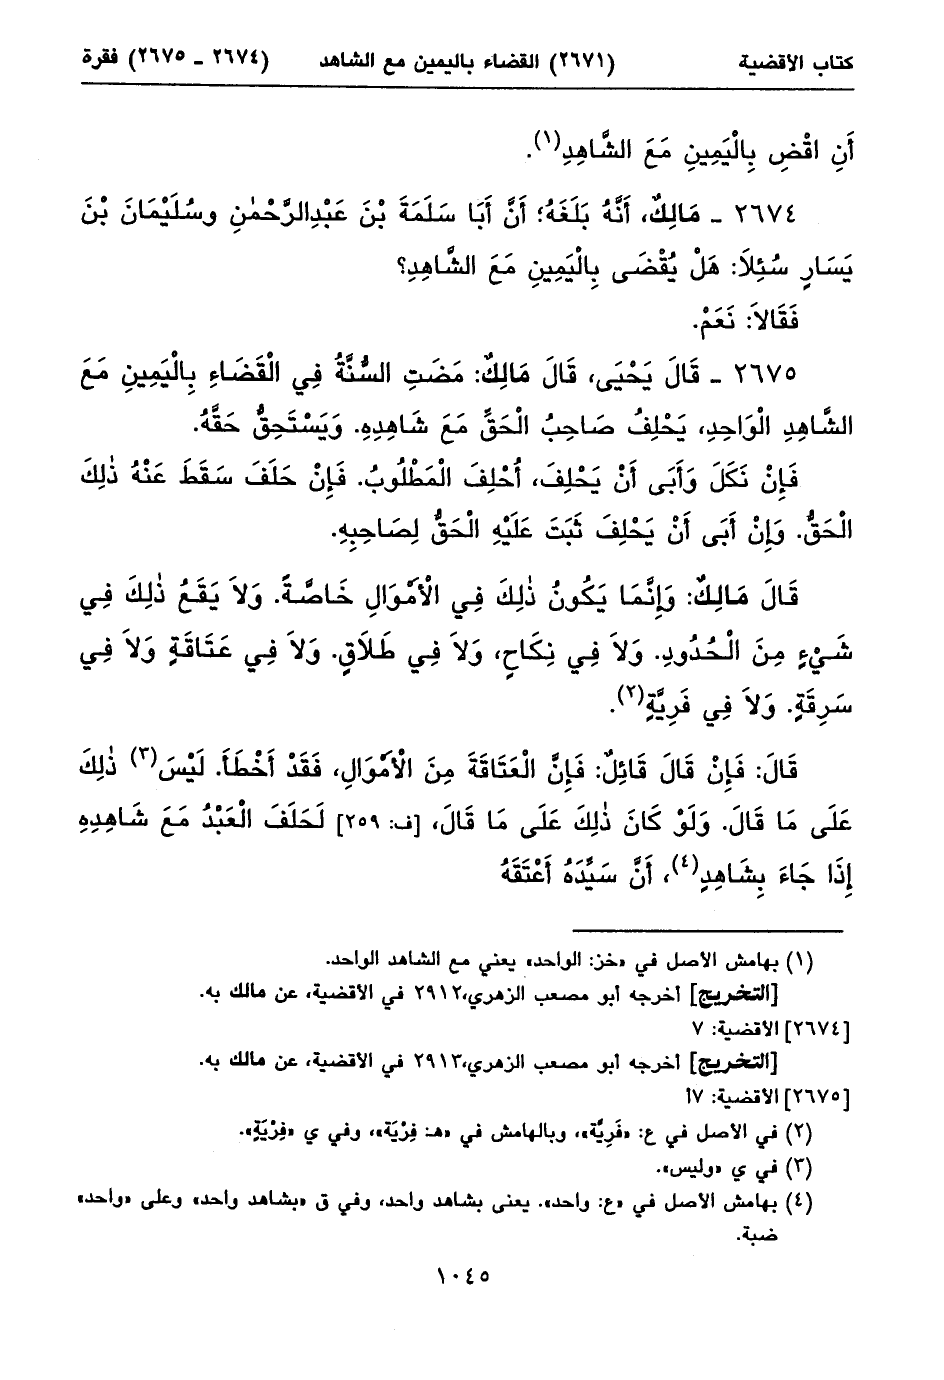 كتاب الأقضية (٢٦٧١) القضاء باليمين مع الشاهد (٢٦٧٤ ـ ٢٦٧٥) فقرة
أَنِ اقْضِ بِالْيَمِينِ مَعَ الشَّاهِدِ(١).
٢٦٧٤ ـ مَالِكٌ، أَنَّهُ بَلَغَهُ؛ أَنَّ أَبَا سَلَمَةَ بْنَ عَبْدِالرَّحْمٰنِ وسُلَيْمَانَ بْنَ
يَسَارٍ سُئِلاَ: هَلْ يُقْضَى بِالْيَمِينِ مَعَ الشَّاهِدِ؟
فَقَالاَ: نَعَمْ.
٢٦٧٥ ـ قَالَ يَحْيَى، قَالَ مَالِكٌ: مَضَتِ السُّنَّةُ فِي الْقَضَاءِ بِالْيَمِينِ مَعَ
الشَّاهِدِ الْوَاحِدِ، يَحْلِفُ صَاحِبُ الْحَقِّ مَعَ شَاهِدِهِ. وَيَسْتَحِقُّ حَقَّهُ.
فَإِنْ نَكَلَ وَأَبَى أَنْ يَحْلِفَ، أُحْلِفَ الْمَطْلُوبُ. فَإِنْ حَلَفَ سَقَطَ عَنْهُ ذٰلِكَ
الْحَقُّ. وَإِنْ أَبَى أَنْ يَحْلِفَ ثَبَتَ عَلَيْهِ الْحَقُّ لِصَاحِبِهِ.
قَالَ مَالِكٌ: وَإِنَّمَا يَكُونُ ذٰلِكَ فِي الْأَمْوَالِ خَاصَّةً. وَلاَ يَقَعُ ذٰلِكَ فِي
شَيْءٍ مِنَ الْحُدُودِ. وَلاَ فِي نِكَاحٍ، وَلاَ فِي طَلاَقٍ. وَلاَ فِي عَتَاقَةٍ وَلاَ فِي
سَرِقَةٍ. وَلاَ فِي فَرِيَّةٍ(٢).
قَالَ: فَإِنْ قَالَ قَائِلٌ: فَإِنَّ الْعَتَاقَةَ مِنَ الْأَمْوَالِ، فَقَدْ أَخْطَأَ. لَيْسَ(٣) ذٰلِكَ
عَلَى مَا قَالَ. وَلَوْ كَانَ ذٰلِكَ عَلَى مَا قَالَ، [ف: ٢٥٩] لَحَلَفَ الْعَبْدُ مَعَ شَاهِدِهِ
إِذَا جَاءَ بِشَاهِدٍ(٤)، أَنَّ سَيِّدَهُ أَعْتَقَهُ
(١) بهامش الأصل في «خز: الواحد» يعني مع الشاهد الواحد.
[التخريج] أخرجه أبو مصعب الزهري،٢٩١٢ في الأقضية، عن مالك به.
[٢٦٧٤] الأقضية: ٧
[التخريج] أخرجه أبو مصعب الزهري،٢٩١٣ في الأقضية، عن مالك به.
[٢٦٧٥] الأقضية: ٧أ
(٢) في الأصل في ع: «فَرِيَّة»، وبالهامش في «هـ: فِرْيَة»، وفي ي «فِرْيَةٍ».
(٣) في ي «وليس».
(٤) بهامش الأصل في «ع: واحد». يعنى بشاهد واحد، وفي ق «بشاهد واحد» وعلى «واحد»
ضبة.
١٠٤٥